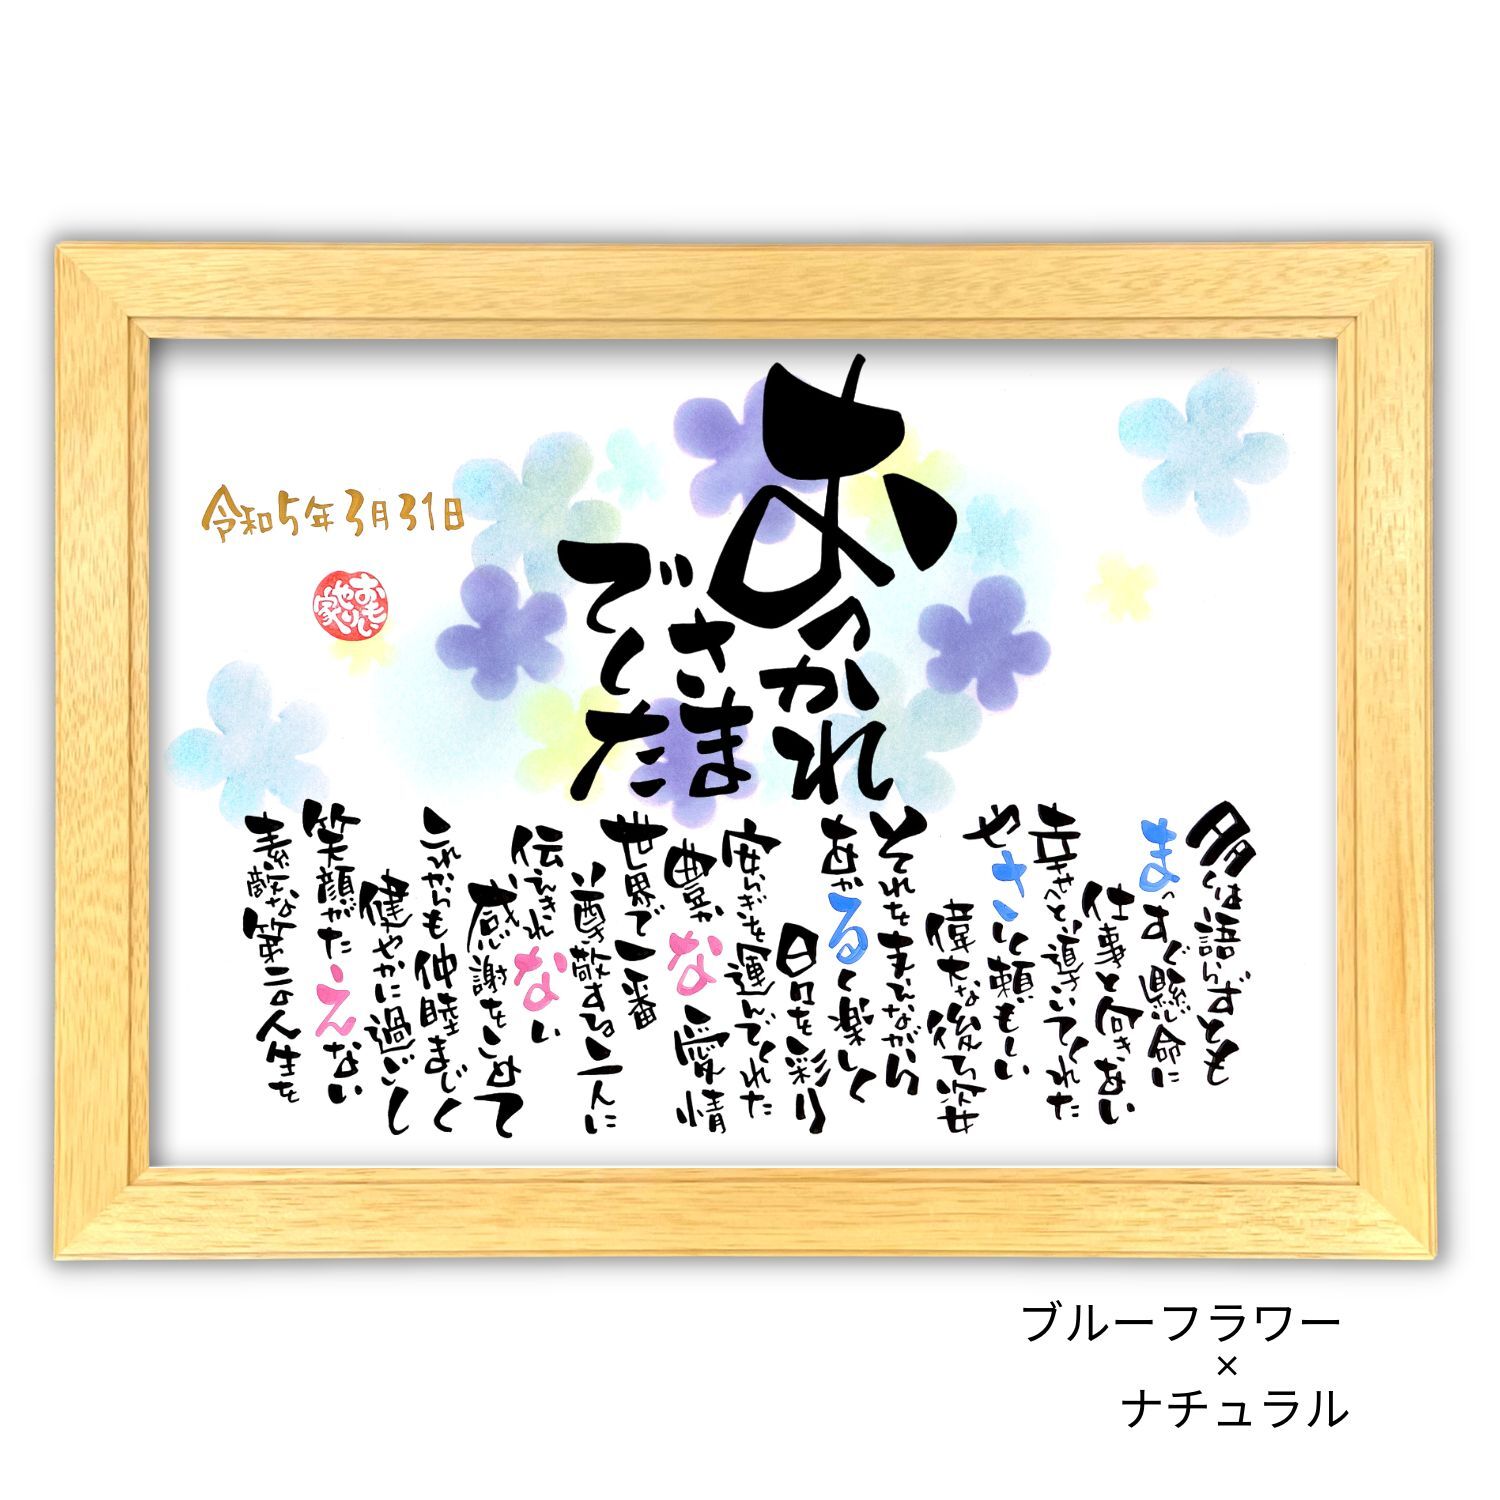 おつかれ
さま
でした
多くは語らずとも
まっすぐ懸命に
仕事と向きあい
幸せへと導いてくれた
やさしく頼もしい
偉大な後ろ姿
それをまもりながら
あかるく楽しく
日々を彩り
安らぎを運んでくれた
豊かな愛情
世界で一番
尊敬する二人に
伝えきれない
感謝をこめて
これからも仲睦まじく
健やかに過ごし
笑顔がたえない
素敵な第二の人生を
令和5年3月31日
おもいやり家
ブルーフラワー
×
ナチュラル